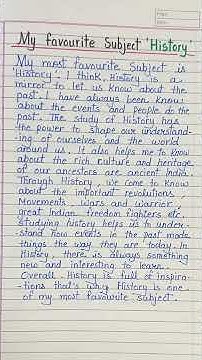 My favourite Subject 'History'
My most favourite Subject is
'History'. I think, History is a
mirror to let us know about the
past. I have always been know
about the events and people do the
past. The study of History has
the power to shape our understand-
-ing of ourselves and the world
around us. It also helps me to know
about the rich culture and heritage
of our ancestors are ancient India.
Through History, we come to know
about the important revolutions
Movements, wars and warrior,
great Indian freedom fighters etc.
studying history helps us to under-
-stand how events in the past made
things the way they are today. In
History, there is always something
new and interesting to learn.
Overall, History is full of inspira-
-tions that's why History is one
of my most favourite subject.